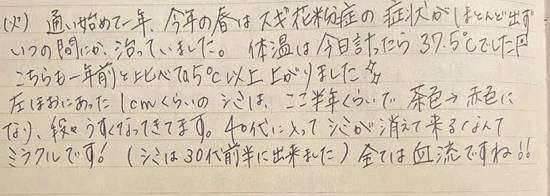 (火) 通い始めて一年、今年の春はスギ花粉症の症状がほとんど出ず
いつの間にか、治っていました。体温は今日計ったら37.5℃でした
こちらも一年前と比べて0.5℃以上上がりました
左ほおにあった1cmくらいのシミは、ここ半年くらいで茶色→赤色に
なり、段々うすくなってきてます。40代に入ってシミが消えて来るなんて
ミラクルです!(シミは30代前半に出来ました)全ては血流ですね!!